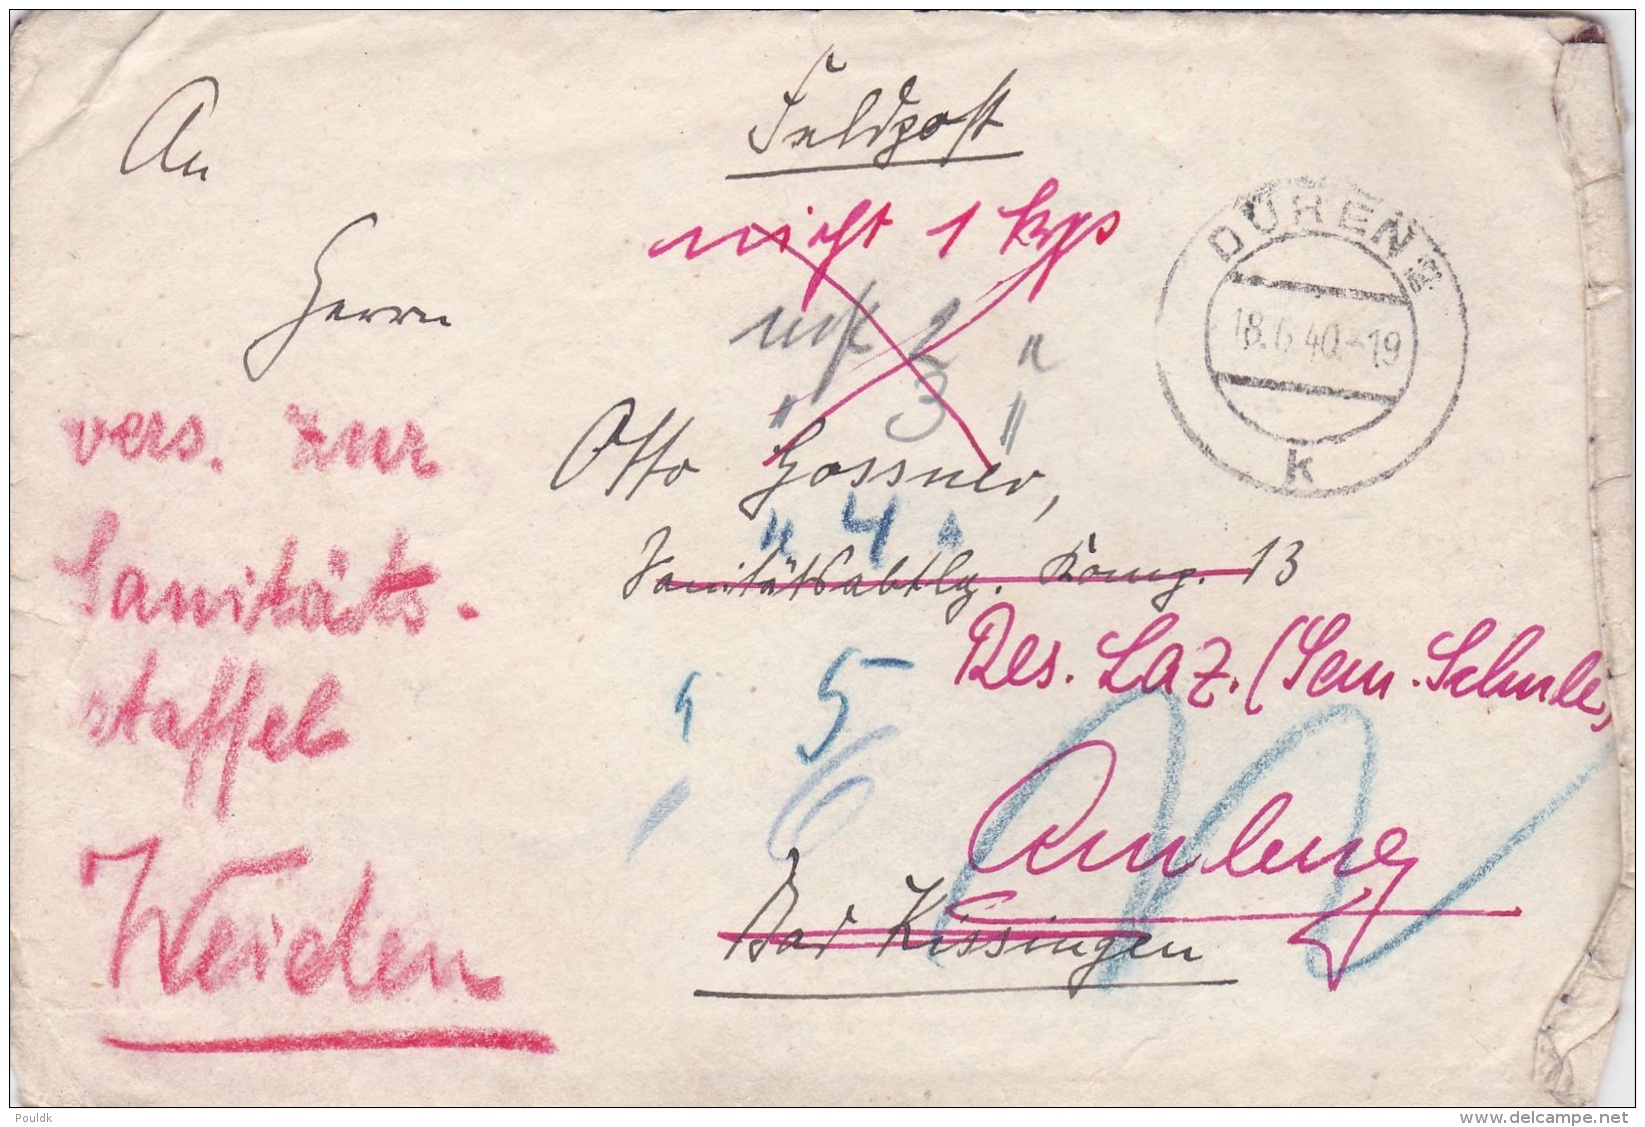 Feldpost
An
Herrn
nicht 1 kps
nicht 2 "
" 3 "
Otto Gossner,
" 4 "
Sanitätsabtlg. Komp. 13
5
6
Res. Laz. (Sem. Schule)
Amberg
Bad Kissingen
vers. zur
Sanitäts-
staffel
Weiden
DÜREN
18.6.40.-19
k
Pouldk
www.delcampe.net